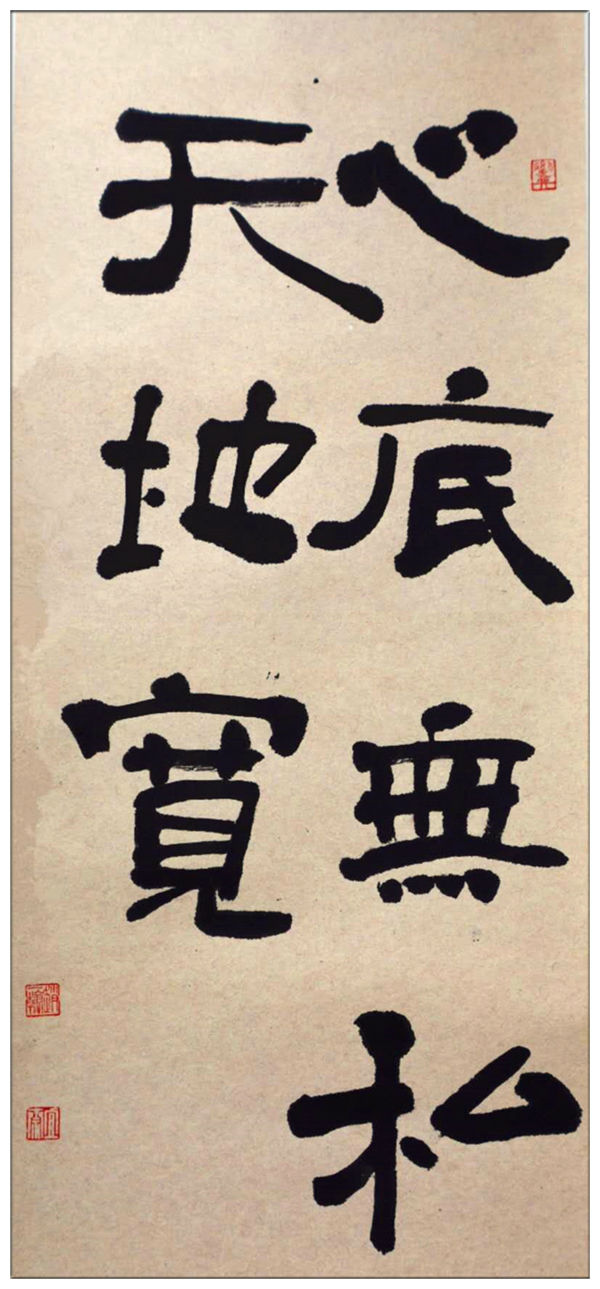 心底無私
天地寬